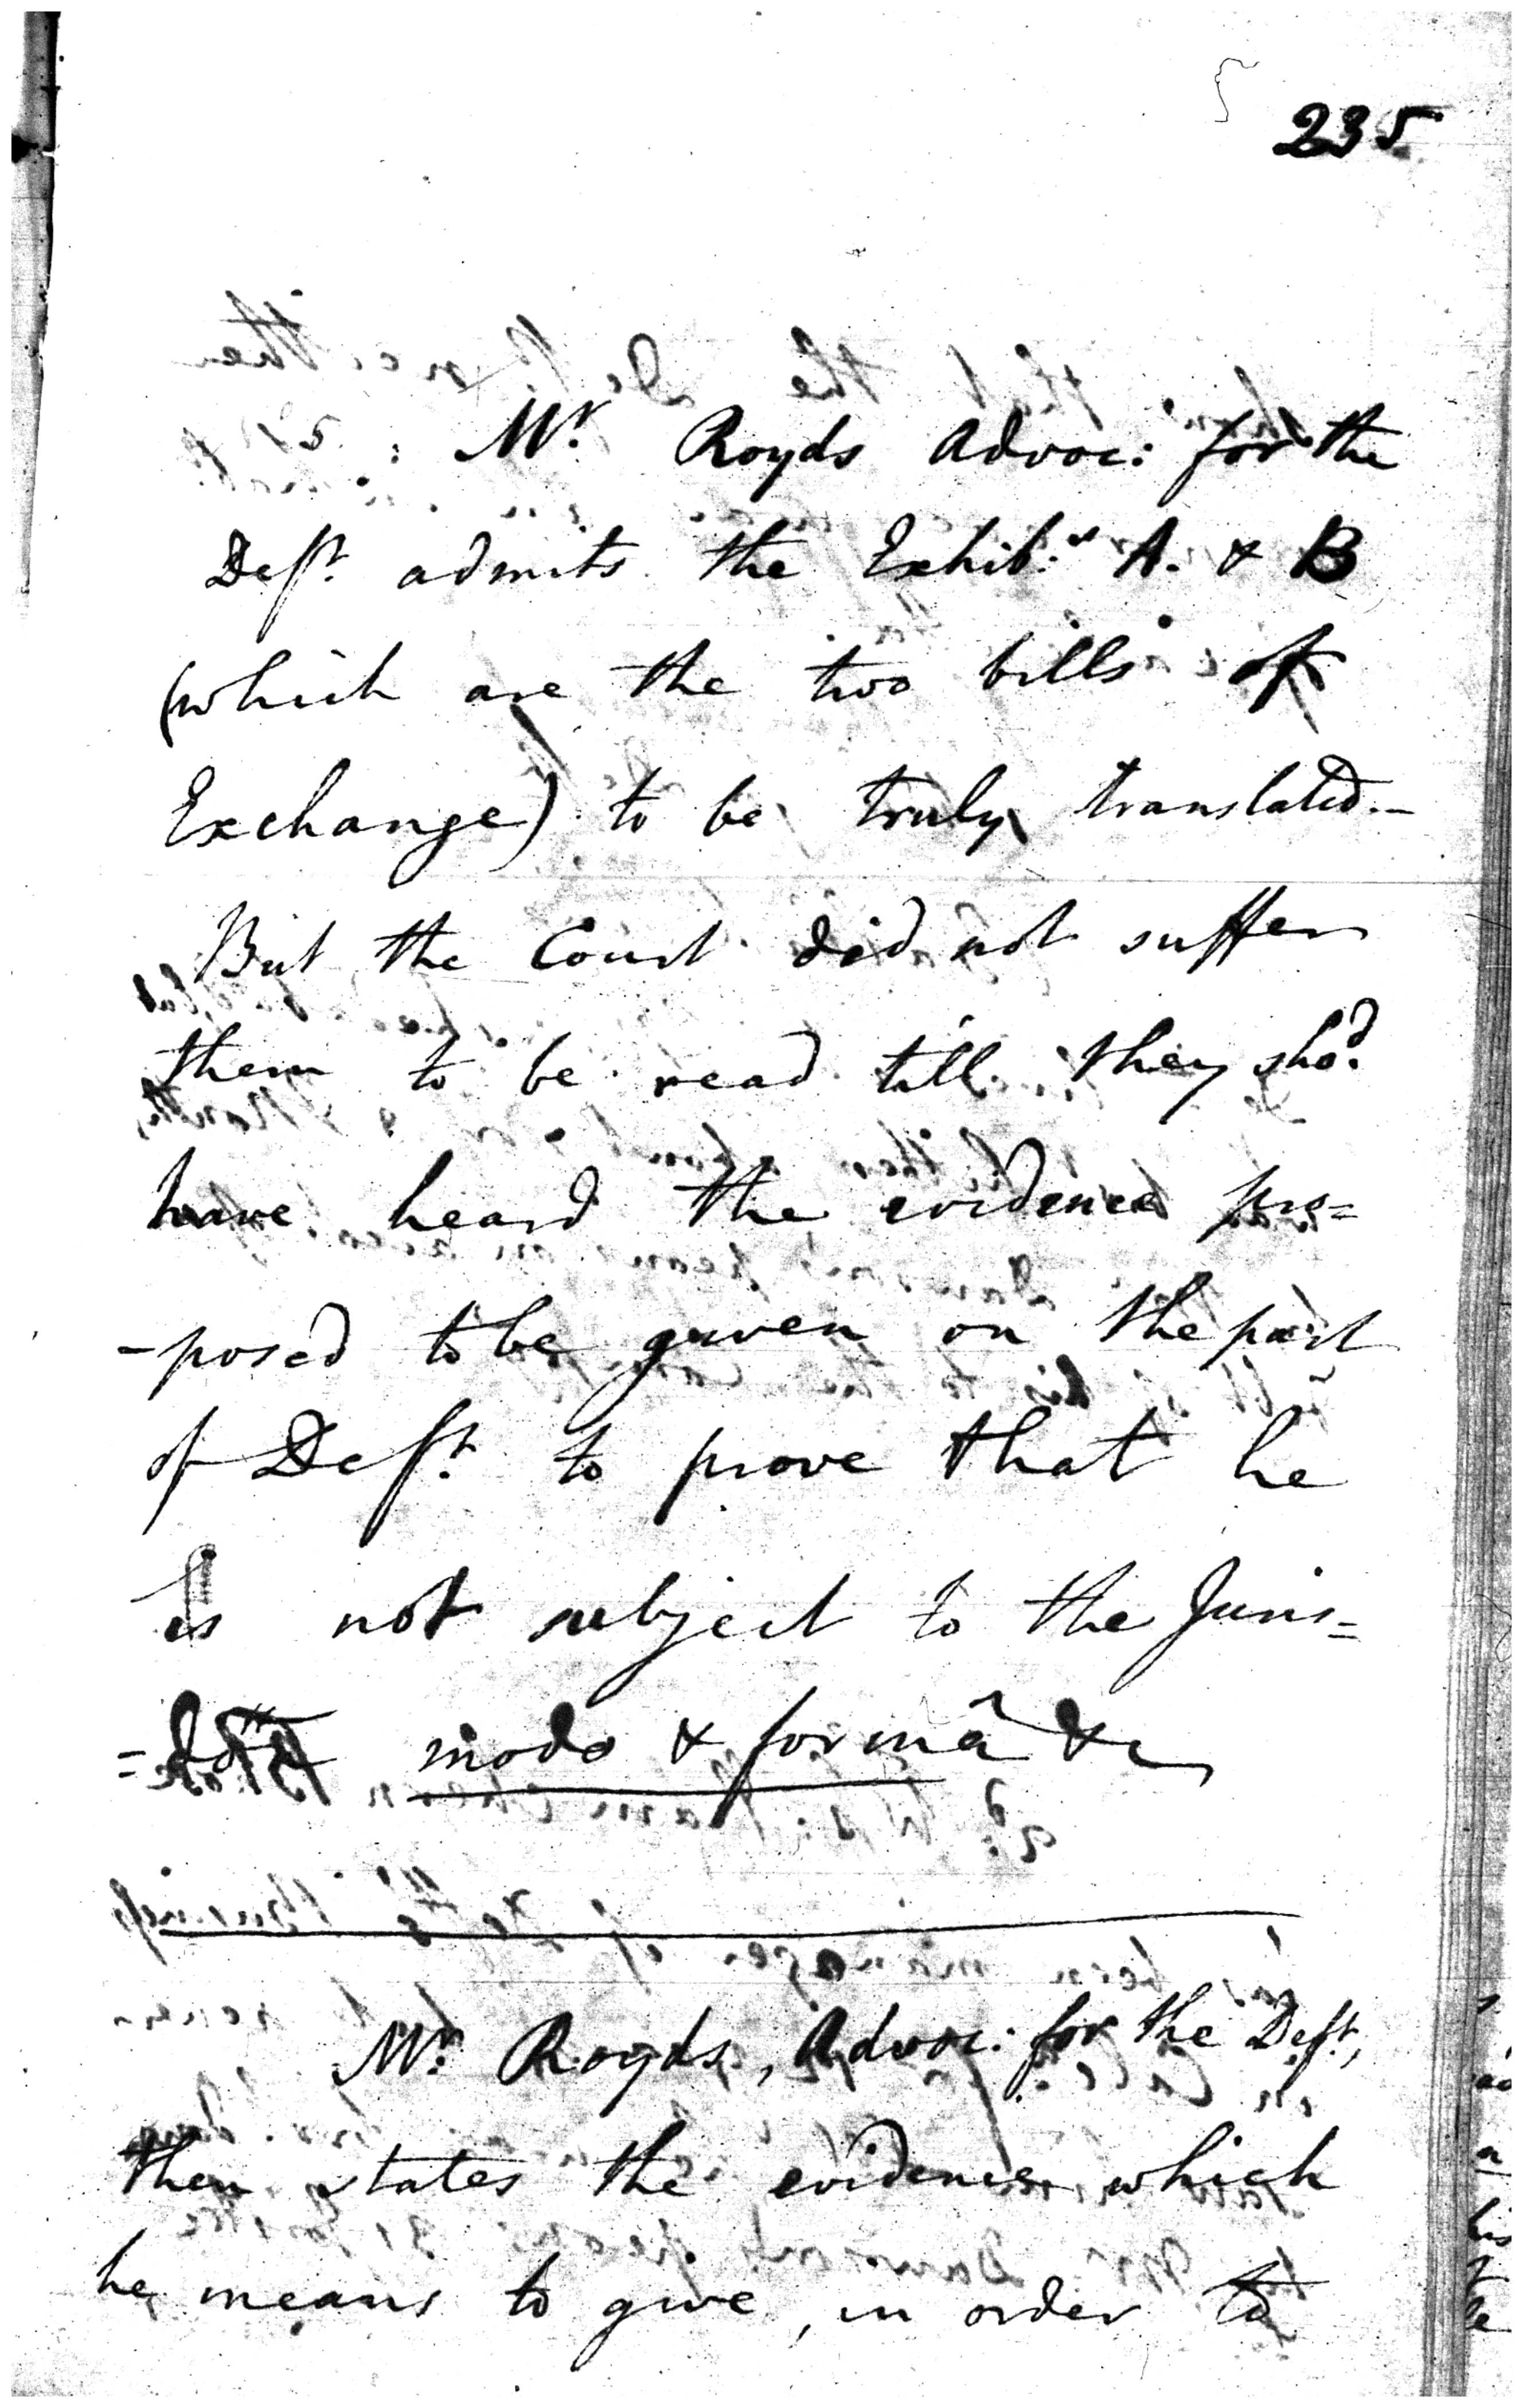 235
Mr. Royds Advoc: for the
Deft. admits the Exhib:ts A. & B
(which are the two bills of
Exchange) to be truly translated.-
But the Court did not suffer
them to be read till they shod.
have heard the evidence pro=
-posed to be given on the part
of Deft. to prove that he
is not subject to the Juris=
modo & formâ &c
Mr. Royds, Advoc: for the Deft,
then states the evidence which
he means to give, in order to